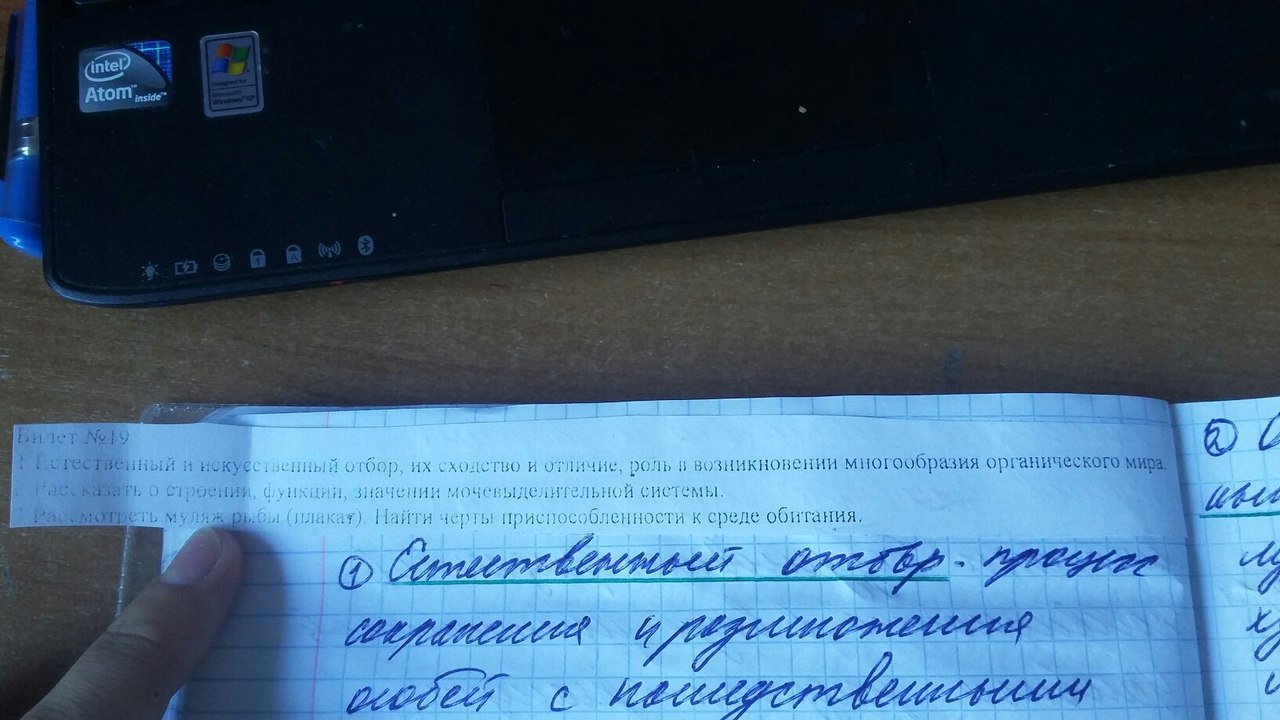 intel
Atom™
inside™
Designed for
Microsoft
Windows XP
Билет №19
1 Естественный и искусственный отбор, их сходство и отличие, роль в возникновении многообразия органического мира.
Рассказать о строении, функции, значении мочевыделительной системы.
Рассмотреть муляж рыбы (плакат). Найти черты приспособленности к среде обитания.
① Естественный отбор - процесс
сохранения и размножения
особей с
②